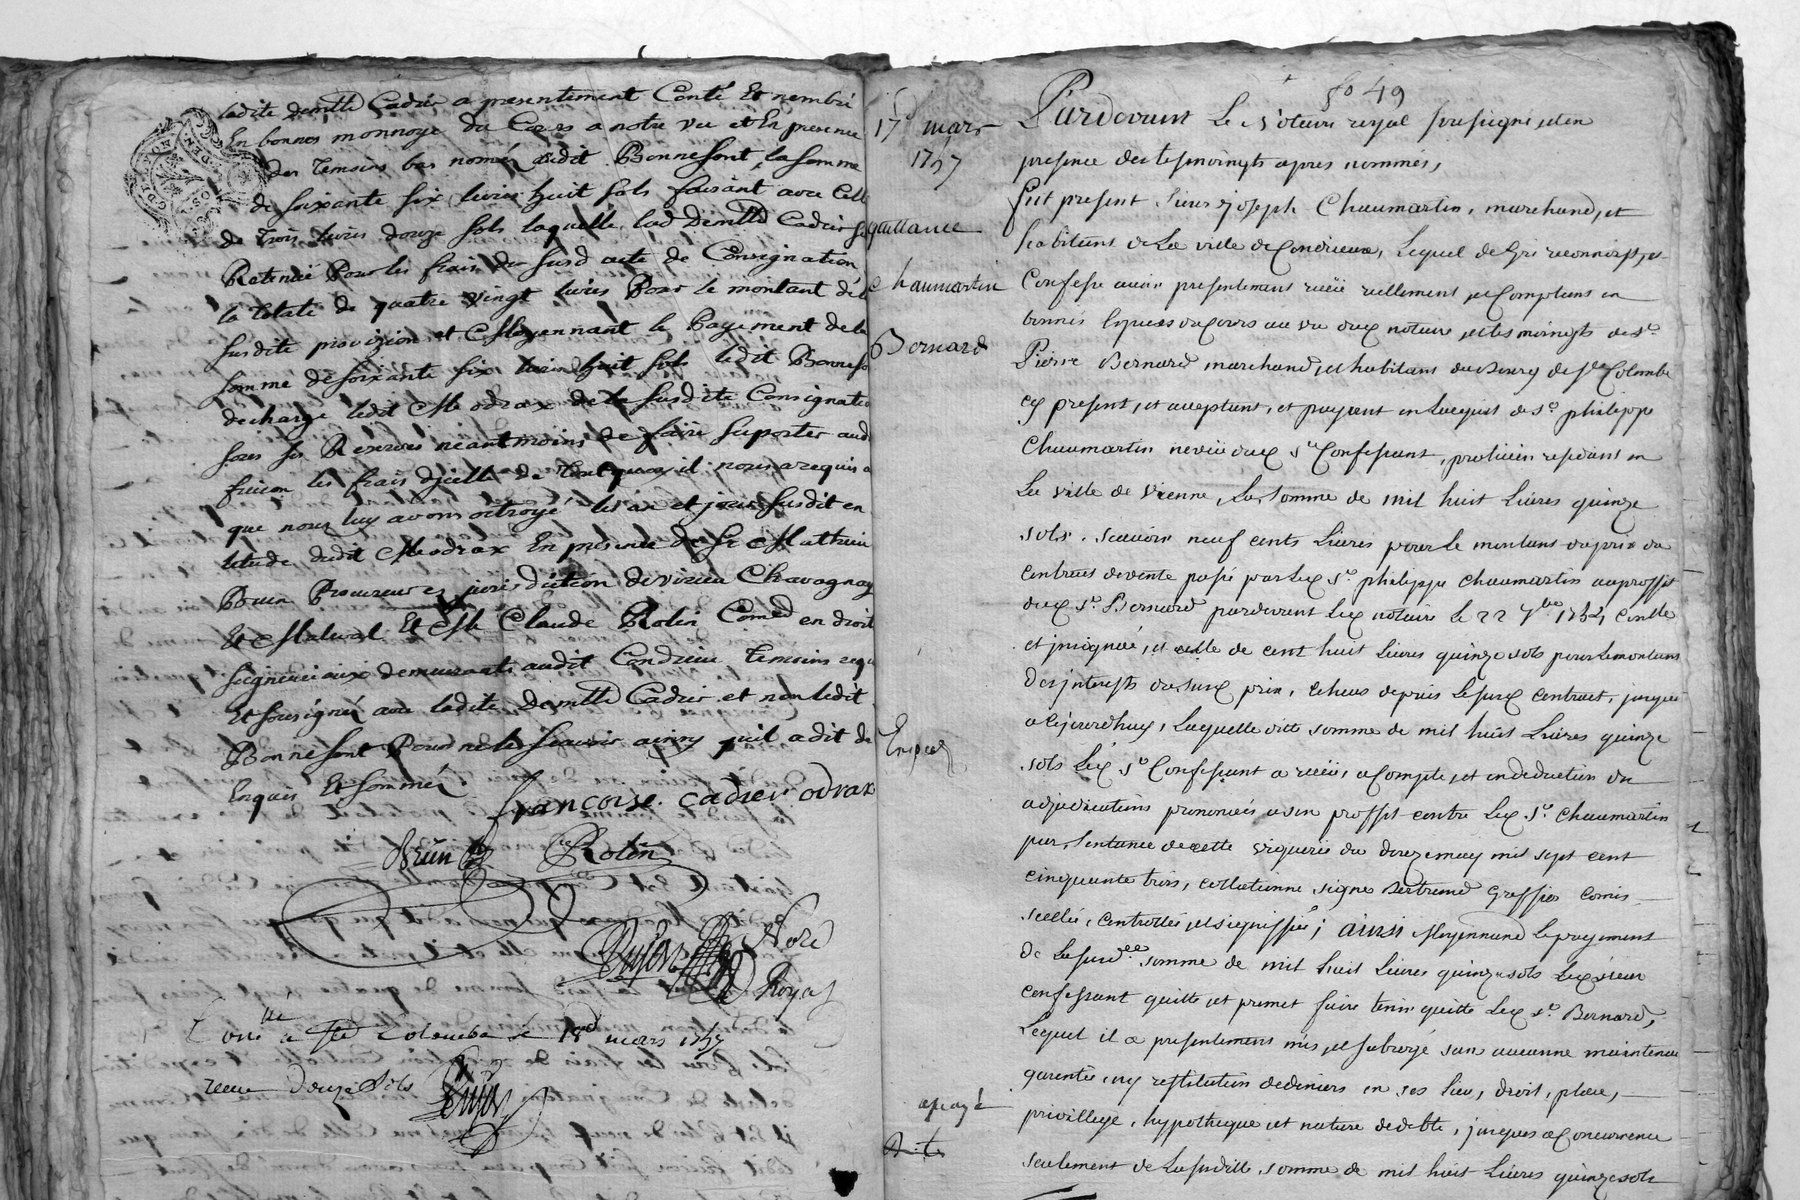 ladite demlle Cadier a presentement Conté Et nembré
En bonnes monnoye du Cours a notre vue et En presence
des temoins bas només audit Bonnefont, la somme
de soixante six livres huit sols faisant avec Celle
de trois livres douze sols laquelle lad Demlle Cadier
Retenüe Pour les frais du susd acte de Consignation
la totale de quatre vingt livres Pour le montant de
susdite provizion et Moyennant le Payement de la
somme de soixante six livres huit sols ledit Bonnefo
decharge ledit Me odrax de la susdite Consignatio
sous ses Reserves neantmoins de faire suporter aud
les frais dicelle de tout quoy il nous a requis a
que nous luy avons octroyé les an et jour susdit en
letude dudit Me odrax En presence de Sr Mathieu
Brun Procureur es juridiction de virieu Chavagnay
Et Malaval Et Me Claude Rolin Comed en droit
seigneuriaux demeurants audit Condrieu temoins requ
Et sousignés avec ladite demlle Cadier et non ledit
Bonnefont Pour ne le scavoir ainsy qu'il a dit de
Enquis Et sommé
francoise cadier odrax
Brun Rolin
Nore
Royal
Conlle a Ste Colombe le 18e mars 1757
receu douze sols
17e mars
1757
quittance
chaumartin
Bernard
fo 49
Pardevant Le Notaire royal sousigné, et en
presence des tesmoingts apres nommes,
fut present sieur joseph Chaumartin, marchand, et
habitant de La ville de Condrieux, Lequel de gré reconnoist, et
Confesse avoir presentement receü reellement et Comptant en
bonnes especes du Cours au vu dud notaire et tesmoingts de sr
Pierre Bernard marchand, et habitant du Bourg de ste Colombe
cy present, et acceptant, et payant en Lacquit de sr philippe
Chaumartin neveu dud sr Confessant, praticien residant en
La ville de Vienne, La somme de mil huit Livres quinze
sols, scavoir neuf cents Livres pour le montant du prix du
contract de vente passé par Led sr philippe Chaumartin au proffit
dud sr Bernard pardevant Led notaire le 22 7bre 1754 Conllé
et jnsignué, et celle de cent huit Livres quinze sols pour Le montant
des jnterests du susd prix, echeus depuis Le susd contract, jusques
a cejourdhuy, Laquelle ditte somme de mil huit Livres quinze
sols Led sr Confessant a receüe, a Compte, et en deduction des
adjudications prononcées a son proffit contre Led sr Chaumartin
par sentance de cette viguerie du douze may mil sept cent
cinquante trois, collationne signe Bertrand Greffier comis
scellée, controllée, et signiffiée; ainsi Moyennant Le payement
de La susd.ee somme de mil huit Livres quinze sols Led sieur
confessant quitte et promet faire tenir quitte Led sr Bernard,
Lequel il a presentement mis, et subrogé sans aucunne maintenue
garentie, ny restitution de deniers en ses Lieu, droit, place,
privillege, hypotheque et nature de debte, jusques a Concurrence
seulement de La susditte somme de mil huit Livres quinze sols